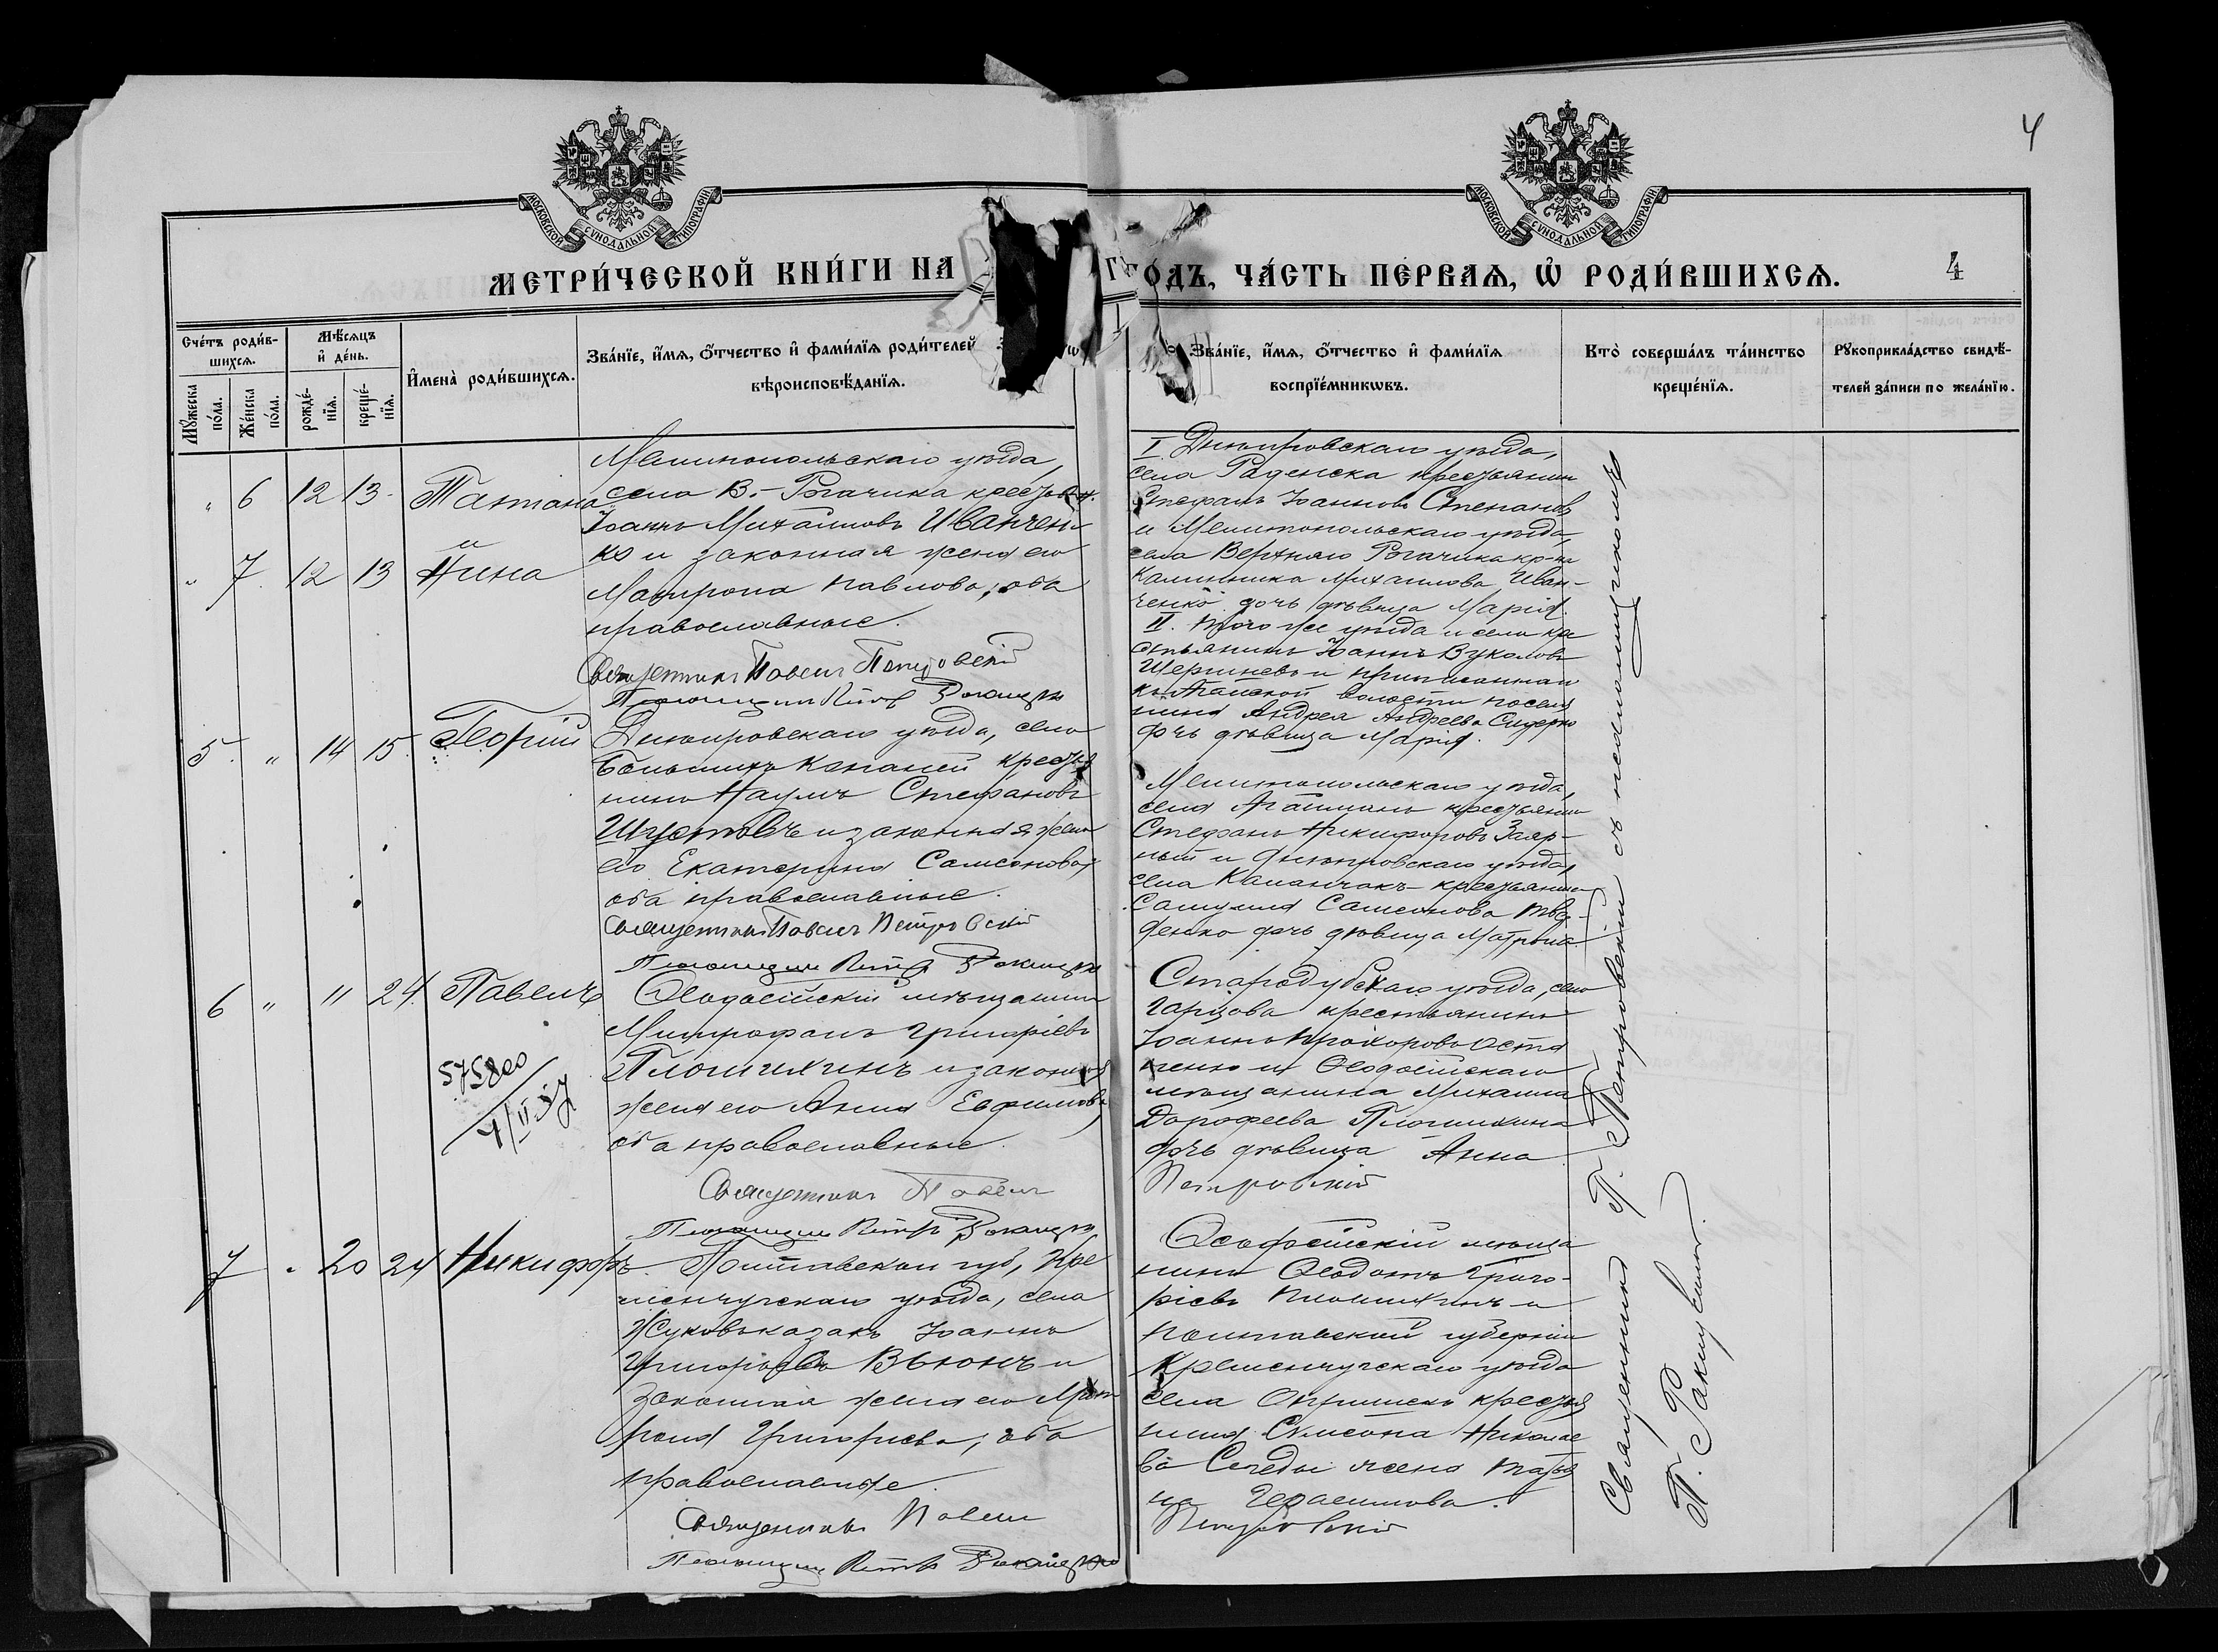 4
МОСКОВСКОЙ СУНОДАЛЬНОЙ ТИПОГРАФІИ
МОСКОВСКОЙ СУНОДАЛЬНОЙ ТИПОГРАФІИ
МЕТРИ́ЧЕСКОЙ КНИ́ГИ НА
ГО́ДЪ, ЧА́СТЬ ПЕ́РВАѦ, Ѡ РОДИ́ВШИХСѦ.
4
Сче́тъ роди́в-
шихсѧ.
Мꙋ́жеска по́ла.
Же́нска по́ла.
Мѣ́сѧцъ и де́нь.
рожде́-нїѧ.
креще́-нїѧ.
И҆мена̀ роди́вшихсѧ.
Зва́нїе, и҆́мѧ, ѻ҆́тчество и҆ фами́лїѧ роди́телей
вѣроисповѣ́данїѧ.
Зва́нїе, и҆́мѧ, ѻ҆́тчество и҆ фами́лїѧ
воспрїе́мникѡвъ.
Кто̀ соверша́лъ та́инство
креще́нїѧ.
Рꙋкоприкла́дство свидѣ́-
телей за́писи по жела́нїю.
" 6 12 13 Татіана
и
" 7 12 13 Нина
Мелитопольскаго уѣзда,
села В.-Рогачика крестьян.
Іоаннъ Михаиловъ Иванчен-
ко и законная жена его
Матрона Павлова, оба
православные.
Священникъ Павелъ Петровскій
Псаломщик Петръ
I Днѣпровскаго уѣзда,
села Раденска крестьянин
Стефанъ Іоанновъ Степанов
и Мелитопольскаго уѣзда,
села Верхняго Рогачика кр-на
Михаилова Иван-
ченко дочь дѣвица Марія.
II. того же уѣзда и села кре
стьянинъ Іоаннъ Вуколовъ
и
волости поселя
нина Андрея Андреева
дочь дѣвица Марія.
5 " 14 15 Георгій
Днѣпровскаго уѣзда, село
Большихъ Копаней крестья
нинъ Наумъ Стефановъ
Шустовъ и законная жена
его Екатерина Самсонова
оба православные.
Священникъ Павелъ Петровскій
Псаломщик Петръ
Мелитопольскаго уѣзда,
села Агайманъ крестьянин
Стефанъ Никифоровъ Заяр-
ный и Днѣпровскаго уѣзда,
села Каланчакъ крестьянина
Самуила Самсонова
денко дочь дѣвица Матрона.
6 " 11 24 Павелъ
575800
Ѳеодосійскій мѣщанинъ
Митрофанъ Григоріевъ
Плошихинъ и законная
жена его Анна Евфимова
оба православные.
Священникъ Павелъ
Псаломщик Петръ
Стародубскаго уѣзда, села
Гарцова крестьянинъ
Іоаннъ Прохоровъ Оста
пенко и Ѳеодосійскаго
мѣщанина Михаила
Дорофеева Плошихина
дочь дѣвица Анна
Петровскій
7 " 20 24 Никифоръ
Полтавской губ, Кре
менчугскаго уѣзда, села
Жуковъ казакъ Іоаннъ
Григорьевъ Вьюнъ и
законная жена его Мат
рона Григорьева, оба
православные.
Священникъ Павелъ
Псаломщик Петръ
Ѳеодосійскій мѣща
нинъ Ѳеодотъ Григо-
рьевъ Плошихинъ и
Полтавской губерніи
Кременчугскаго уѣзда
села крестья
нина Симеона Николае
ва жена Татья
на Герасимова.
Петровскій
Священникъ П. Петровскій съ псаломщикомъ
П.